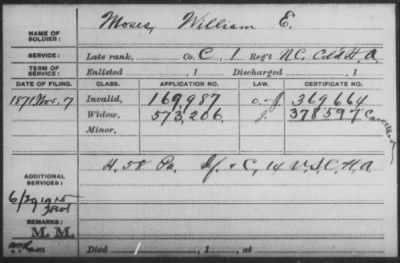 NAME OF SOLDIER: Moses, William E.
SERVICE: Late rank, Co. C, 1 Reg't N.C. Cld H. A.
TERM OF SERVICE: Enlisted , 1 Discharged , 1
DATE OF FILING. CLASS. APPLICATION NO. LAW. CERTIFICATE NO.
1871 Nov. 7 Invalid, 169,987 369,664
Widow, 573,206. 378,597
Minor,
ADDITIONAL SERVICES: H. 58 Pa. & C, 14 U.S.C.H.A.
REMARKS: M. M.
Died , 1 , at